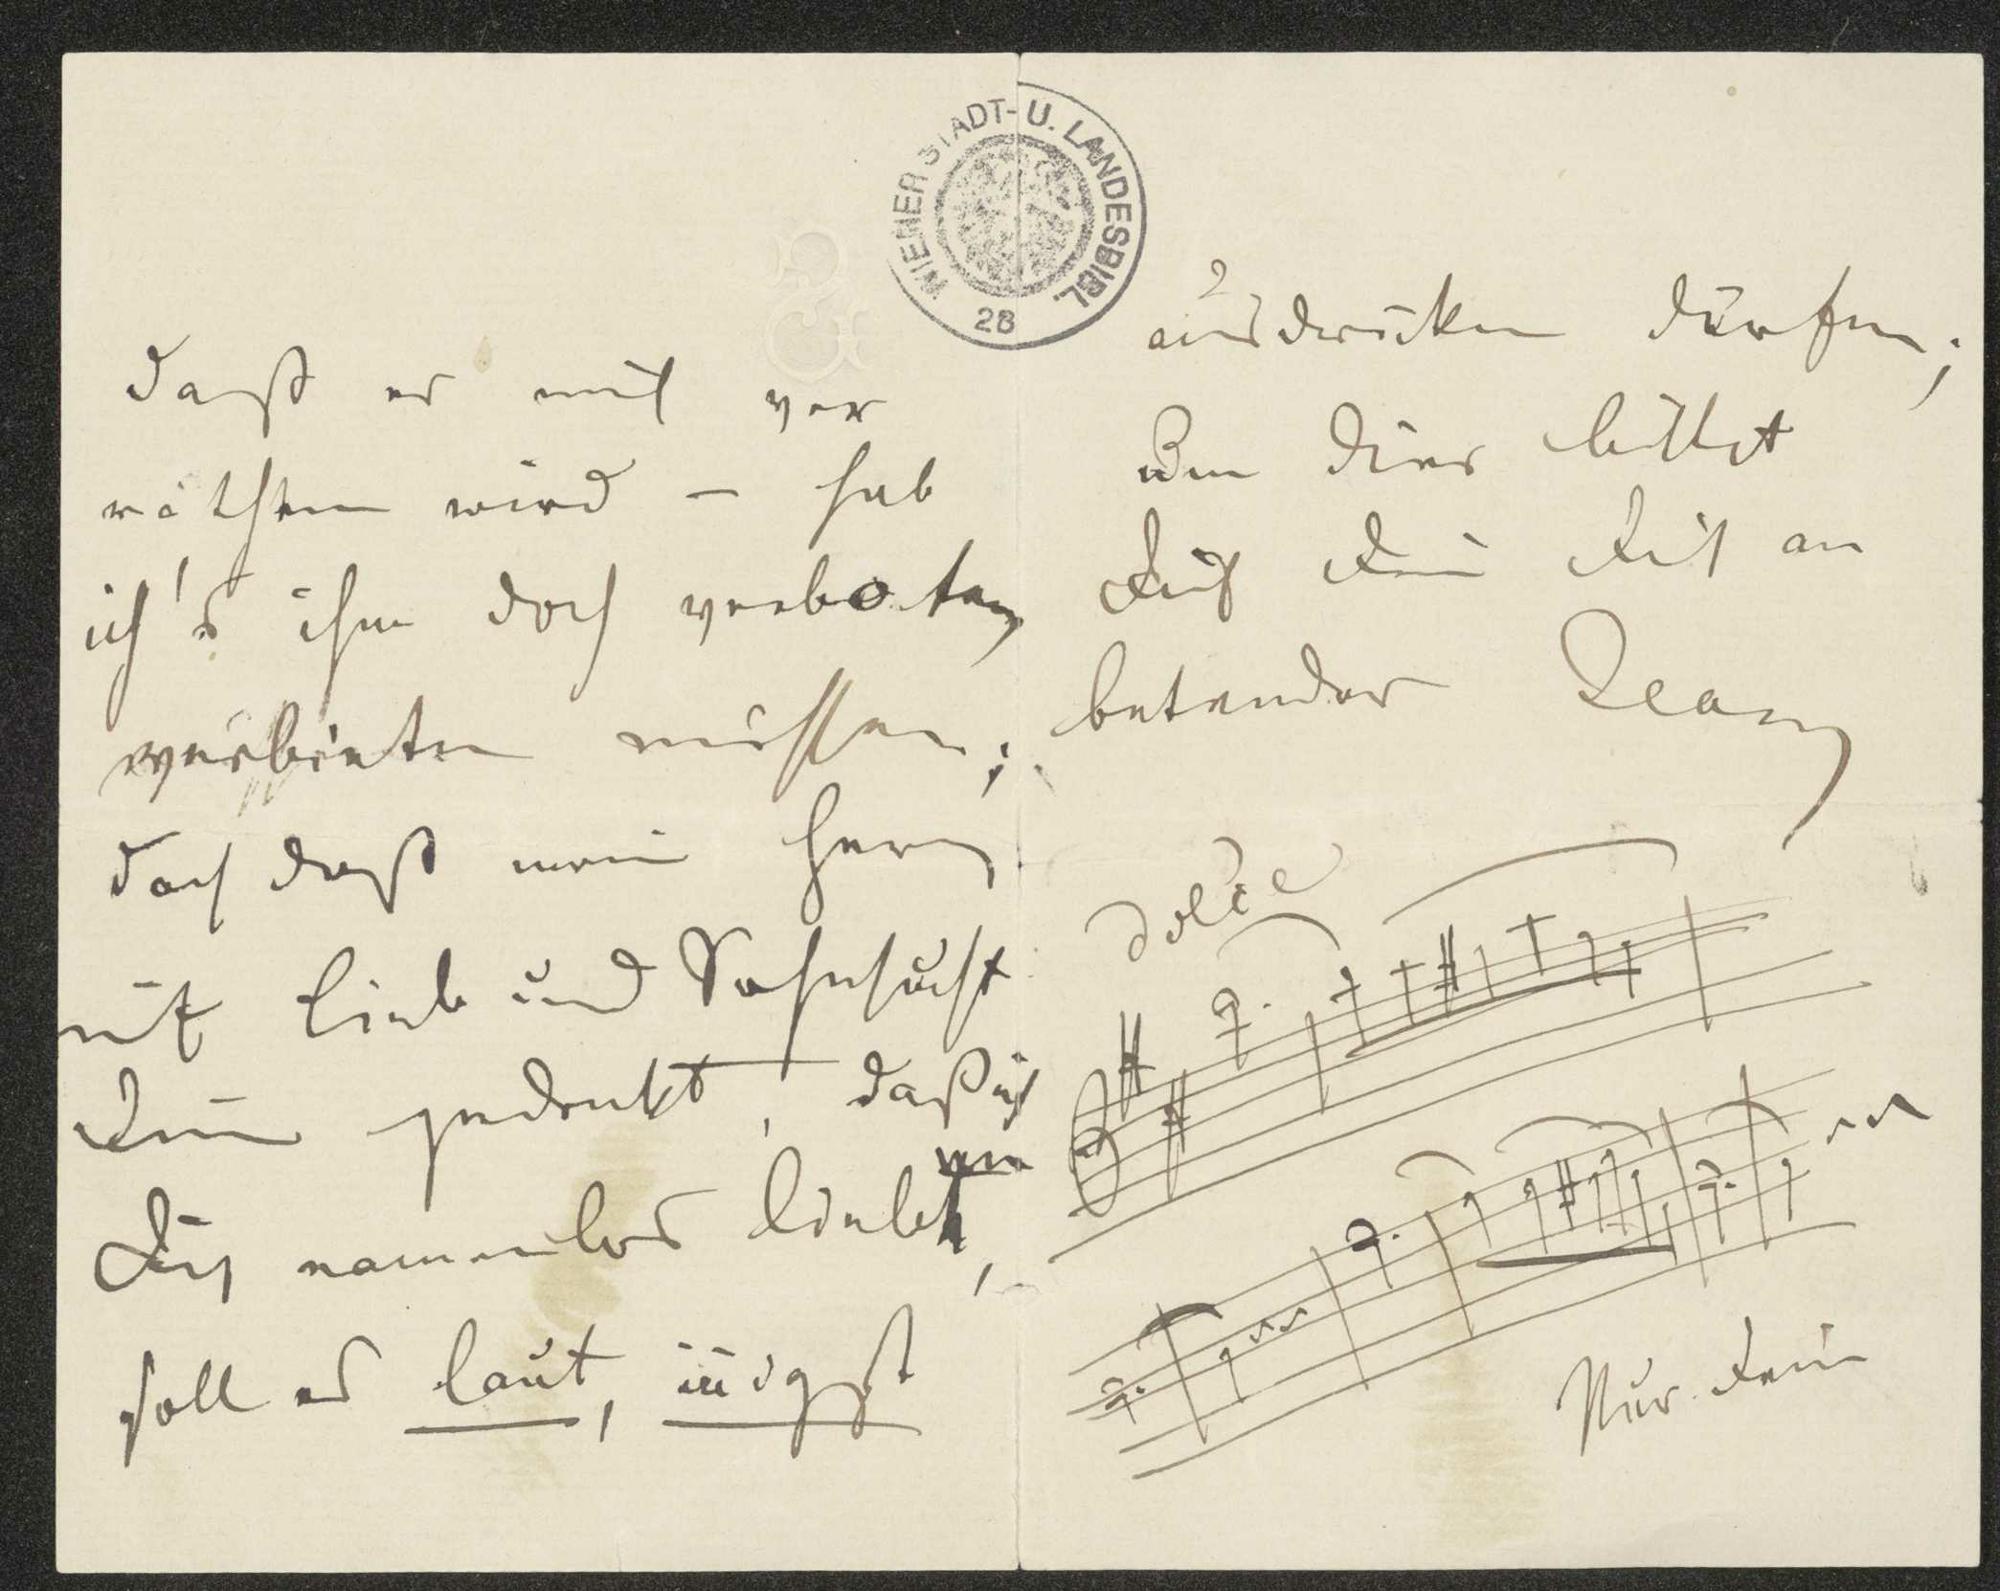 daß es mich ver
rathen wird – hab
ich's ihm doch verboten,
verbieten müssen;
doch daß mein Herz
mit Lieb und Sehnsucht
Dein gedenkt, daß ich
Dich namenlos liebe,
soll es laut,
ausdrücken dürfen;
Um dies bittet
Dich Dein Dich an
betender Jean
dolce
Nur Dein
WIENER STADT- U. LANDESBIBL.
28